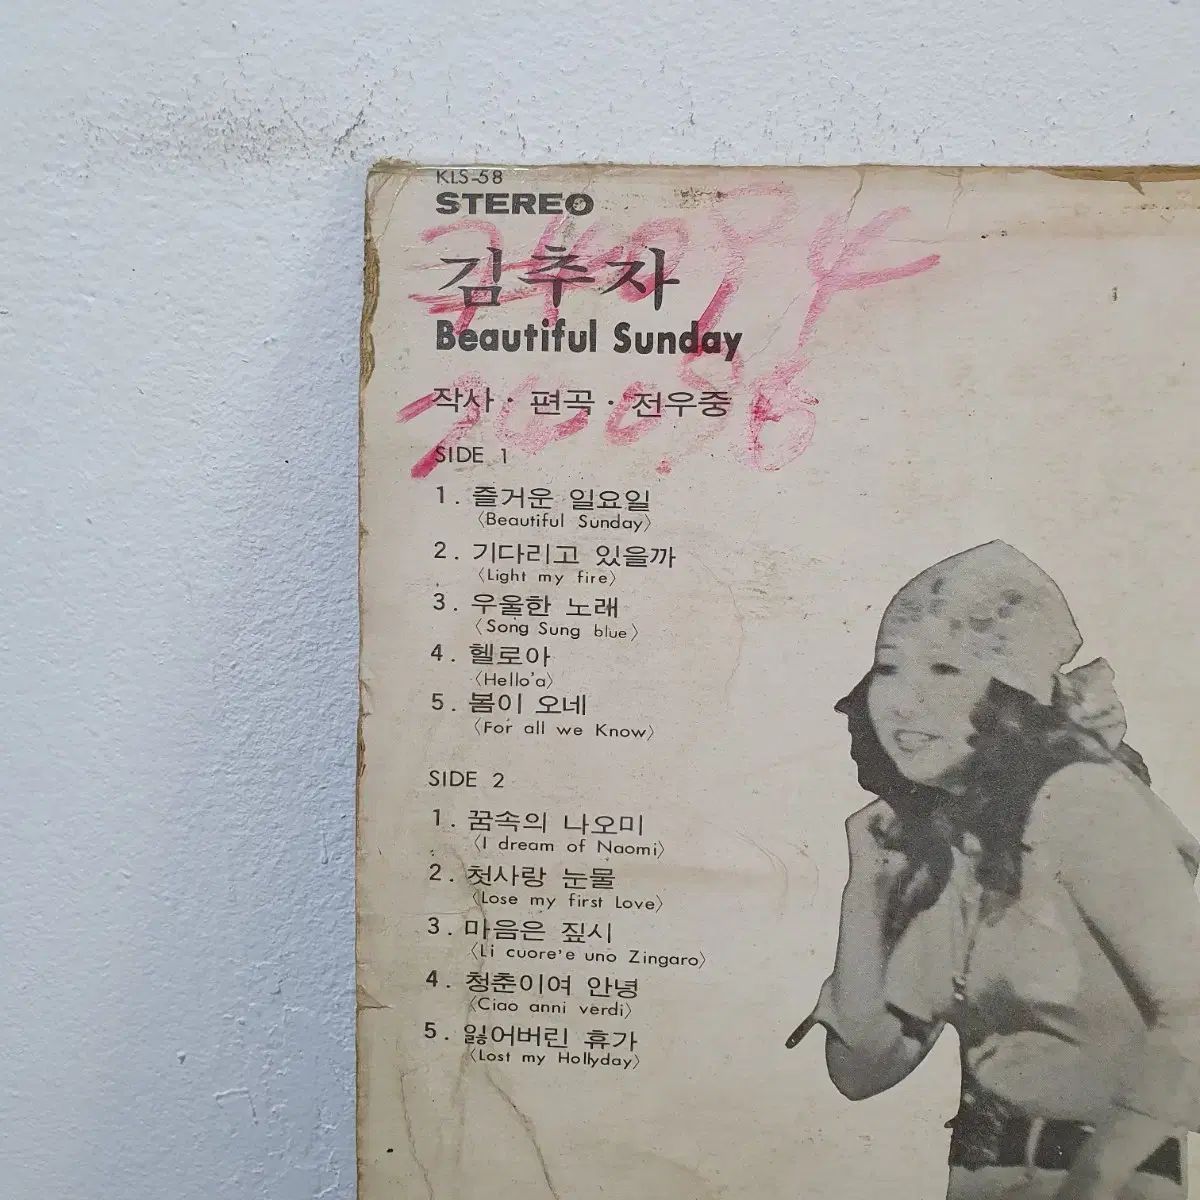 KLS-58
STEREO
김추자
Beautiful Sunday
작사 · 편곡 · 전우중
SIDE 1
1. 즐거운 일요일
〈Beautiful Sunday〉
2. 기다리고 있을까
〈Light my fire〉
3. 우울한 노래
〈Song Sung blue〉
4. 헬로아
〈Hello'a〉
5. 봄이 오네
〈For all we Know〉
SIDE 2
1. 꿈속의 나오미
〈I dream of Naomi〉
2. 첫사랑 눈물
〈Lose my first Love〉
3. 마음은 짚시
〈Li cuore'e uno Zingaro〉
4. 청춘이여 안녕
〈Ciao anni verdi〉
5. 잃어버린 휴가
〈Lost my Hollyday〉